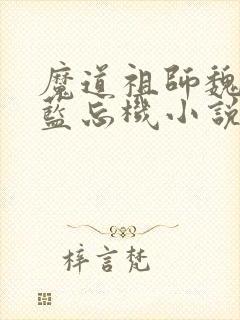 魔道祖師魏
藍忘機小說
梓言梵